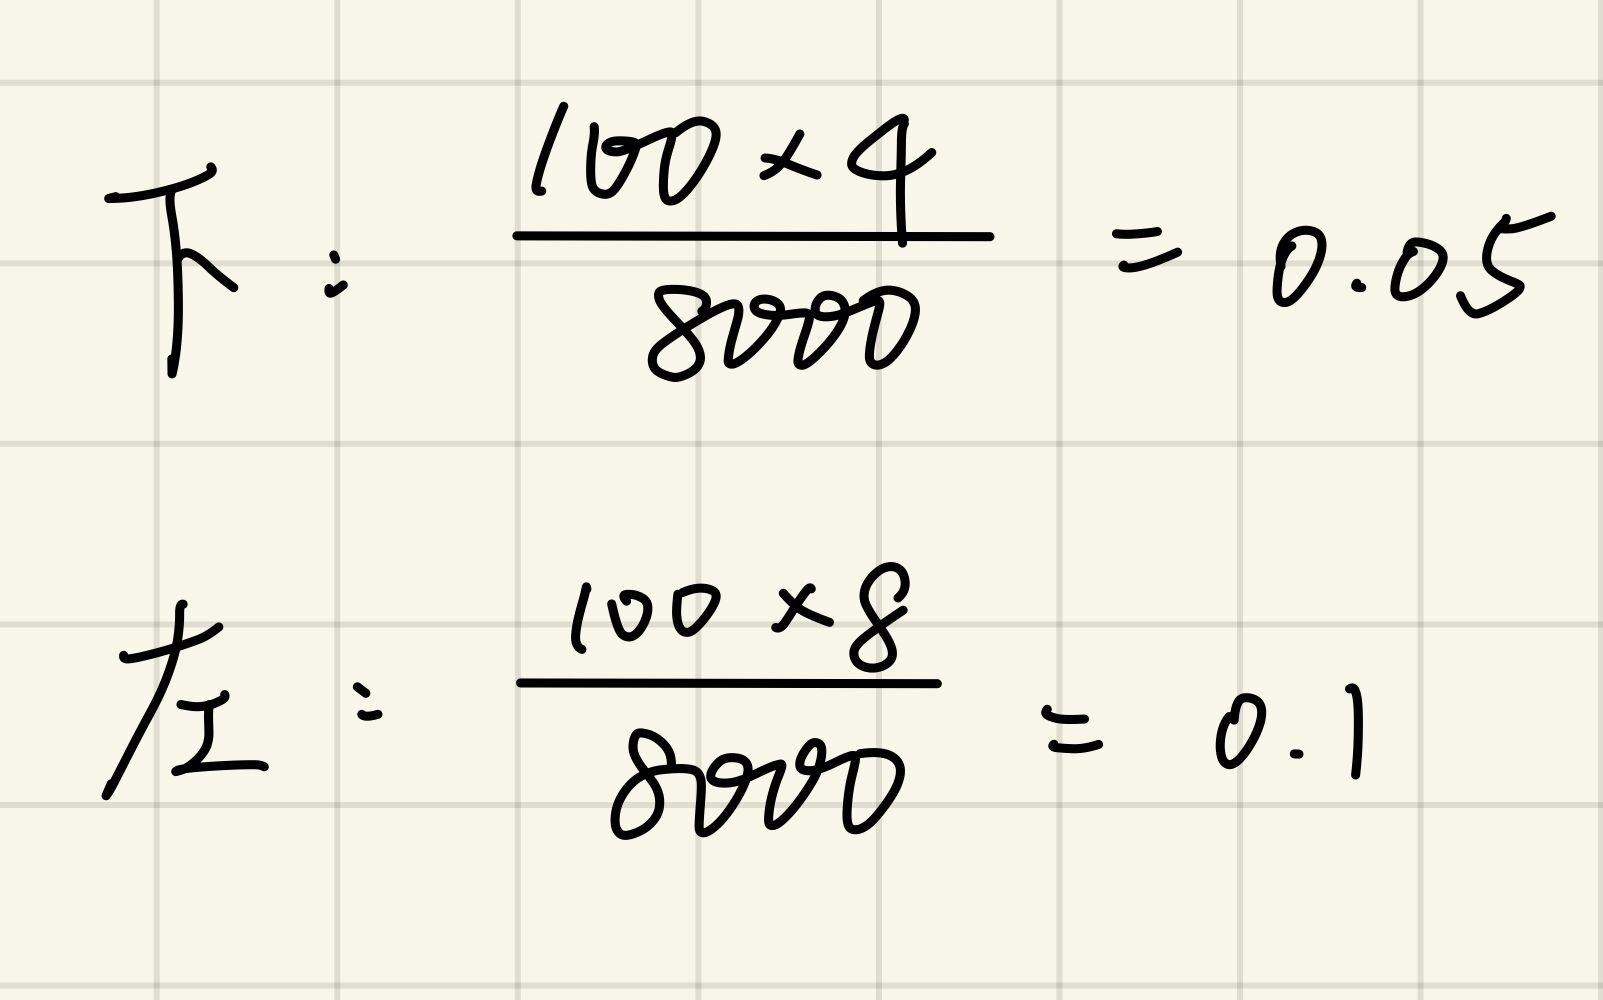 下: 100×4 / 8000 = 0.05
左: 100×8 / 8000 = 0.1